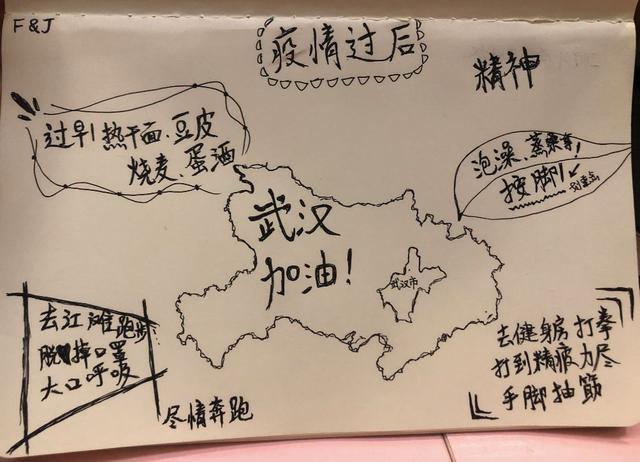 F & J
疫情过后
精神
过早！热干面、豆皮
烧麦、蛋酒
泡澡、蒸桑拿！
按脚！
划重点
武汉
加油！
武汉市
去江滩跑步
脱掉口罩
大口呼吸
尽情奔跑
去健身房打拳
打到精疲力尽
手脚抽筋